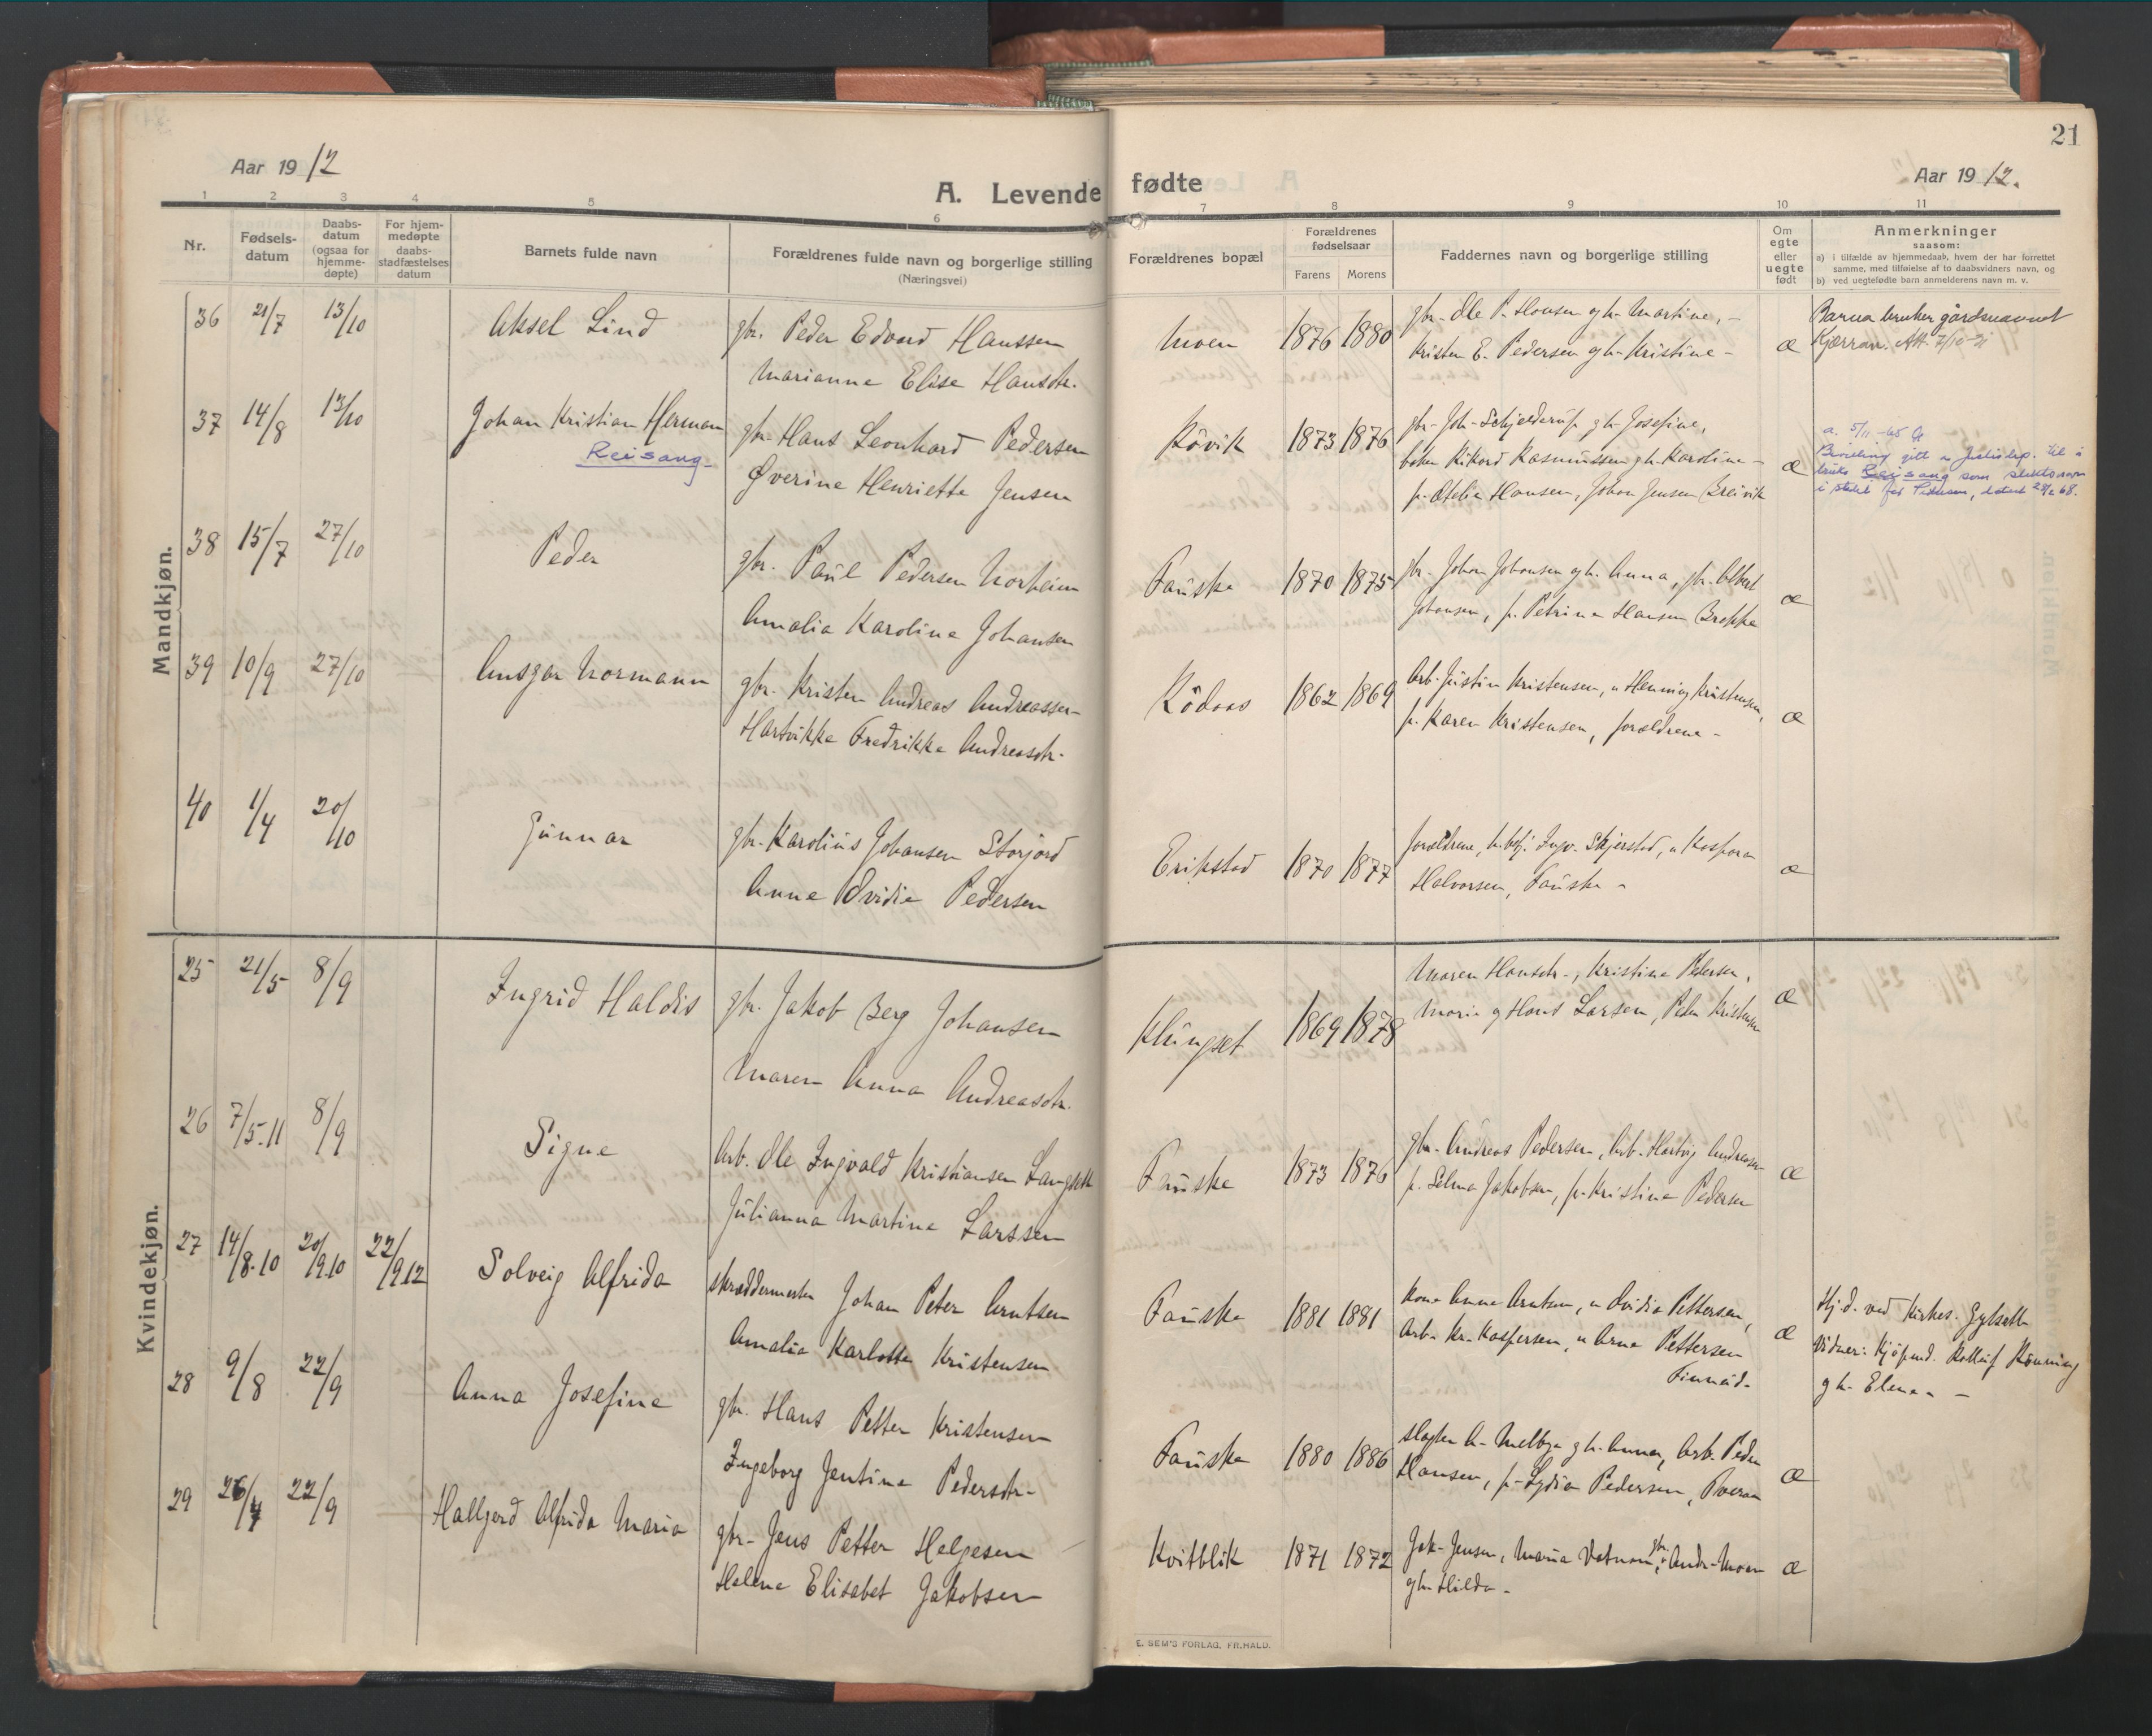 21
Aar 19 12
A. Levende fødte
Aar 19 12.
1 2 3 4 5 6 7 8 9 10 11
Nr.
Fødsels-
datum
Daabs-
datum
(ogsaa for
hjemme-
døpte)
For hjem-
medøpte
daabs-
stadfæstelses
datum
Barnets fulde navn
Forældrenes fulde navn og borgerlige stilling
(Næringsvei)
Forældrenes bopæl
Forældrenes
fødselsaar
Farens Morens
Faddernes navn og borgerlige stilling
Om
egte
eller
uegte
født
Anmerkninger
saasom:
a) i tilfælde av hjemmedaab, hvem der har forrettet
samme, med tilføielse af to daabsvidners navn, og
b) ved uegtefødte barn anmelderens navn m. v.
Mandkjøn.
36 21/7 13/10 Aksel Lind
gbr. Peder Edvard Hanssen
Marianna Elise Hansdtr.
Moen 1876 1880
gbr. Ole P. Hansen og h. Martine, -
Kristen E. Pedersen og h. Kristine -
æ
Barna bruker gårdsnavnet
Kjærran.
37 14/8 13/10 Johan Kristian Herman
Reisang
gbr. Hans Leonhard Pedersen
Øverine Henriette Jensen
Røvik 1873 1876
gbr. Joh. Schjelderup og h. Josefine,
Rikard Rasmussen og h. Karoline -
p. Otelie Hansen, Johan Jensen Breivik
æ
a. 5/11 -65
Bevilling gitt av Justisdep. til å
bruke Reisang som slektsnavn
i stedet for Pedersen, datert
38 15/7 27/10 Peder
gbr. Paul Pedersen Norheim
Amalia Karoline Johansen
Fauske 1870 1875
gbr. Johan Johansen og h. Anna, gbr. Albert
Johansen, p. Petrine Hansen Brekke
æ
39 10/9 27/10 Ansgar Normann
gbr. Kristen Andreas Andreassen
Hartvikke Fredrikke Andreasdtr.
Rødaas 1862 1869
Arb. Justin Kristensen, u. Henning Kristensen,
p. Karen Kristensen, forældrene -
æ
40 1/4 20/10 Gunnar
gbr. Karolius Johansen Storjord
Anne Ovidie Pedersen
Erikstad 1870 1877
forældrene, Ingv. Skjerstad, u. Kaspara
Halvorsen, Fauske -
æ
Kvindekjøn.
25 21/5 8/9 Ingrid Haldis
gbr. Jakob Berg Johansen
Maren Anna Andreasdtr.
Klungset 1869 1878
Maren Hansdtr., Kristine Pedersen,
Marie og Hans Larsen, Peder Kristensen
æ
26 7/5.11 8/9 Signe
Arb. Ole Ingvald Kristiansen Langsett
Julianna Martine Larssen
Fauske 1873 1876
gbr. Andreas Pedersen, Arb. Hartvig Andreasen
p. Selma Jakobsen, p. Kristine Pedersen
æ
27 14/8.10 20/9.10 22/9.12 Solveig Alfrida
skræddermester Johan Peter Arntsen
Amalia Karlotte Kristensen
Fauske 1881 1881
Kone Anna Arntsen, u. Ovidia Pettersen,
Arb. Kr. Kaspersen, u. Arne Pettersen
Finneid.
æ
Hj.d. ved kirkes. Gylseth
Vidner: Kjøpmd. Rolleif Rønning
og h. Elena -
28 9/8 22/9 Anna Josefine
gbr. Hans Petter Kristensen
Ingeborg Jentine Pedersdtr.
Fauske 1880 1886
slagter A. Melbye og h. Anna, Arb. Peder
Hansen, p. Lydia Pedersen, Tveraa
æ
29 26/7 22/9 Hallgerd Alfrida Maria
gbr. Jens Petter Helgesen
Helene Elisabet Jakobsen
Kvitblik 1871 1872
Jak. Jensen, Maria Vatnan, gbr. Andr. Moen
og h. Hilda -
æ
E. SEM'S FORLAG, FR.HALD.